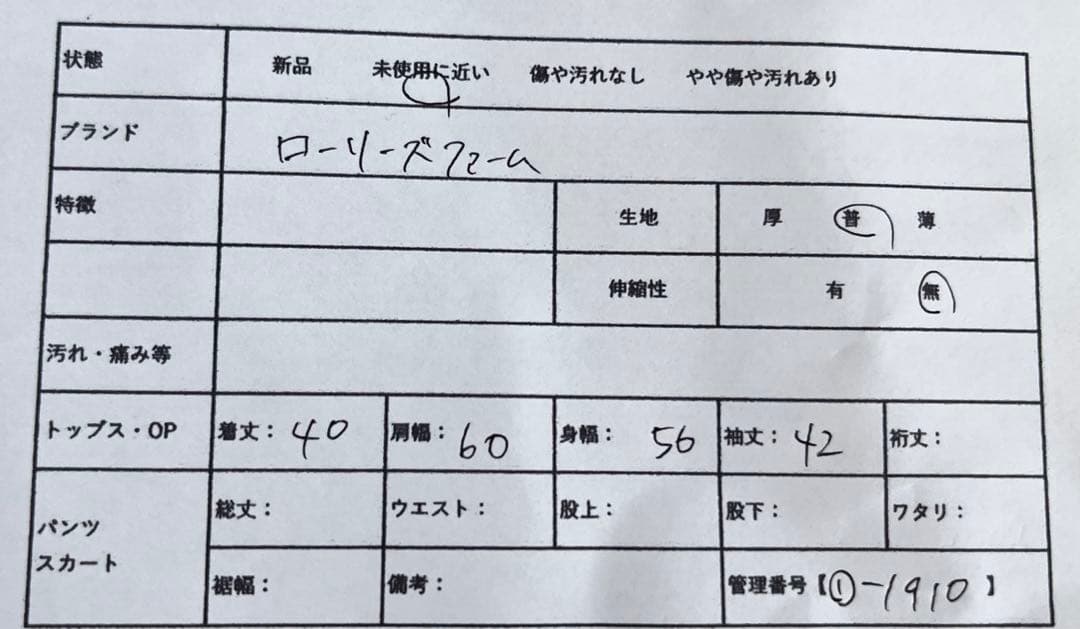 状態 新品 未使用に近い 傷や汚れなし やや傷や汚れあり
ブランド ローリーズファーム
特徴 生地 厚 普 薄
伸縮性 有 無
汚れ・痛み等
トップス・OP 着丈: 40 肩幅: 60 身幅: 56 袖丈: 42 裄丈:
パンツ
スカート
総丈: ウエスト: 股上: 股下: ワタリ:
裾幅: 備考: 管理番号【①-1910】